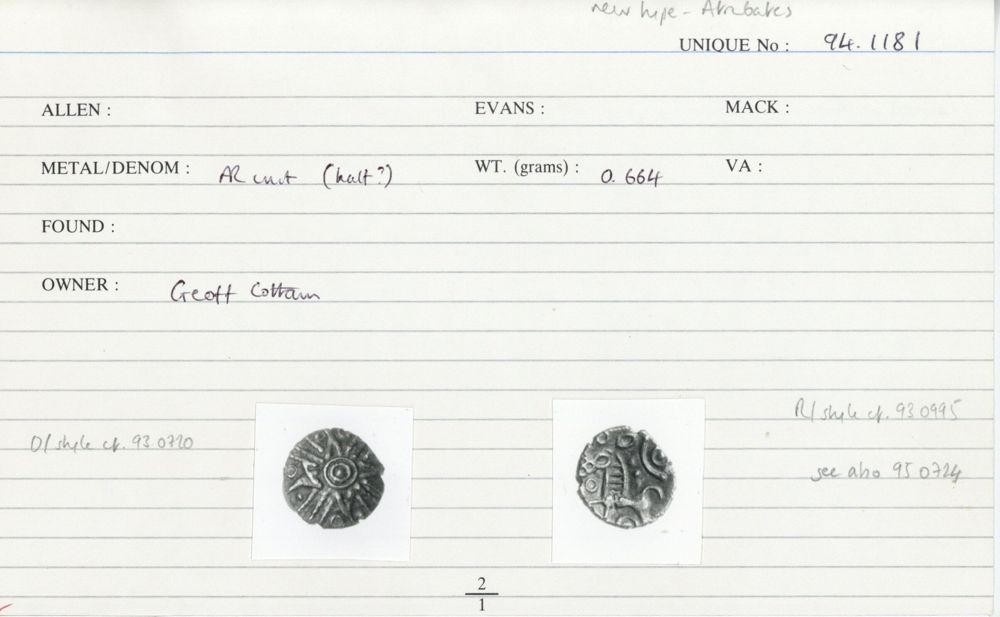 new type - Atrebates
UNIQUE No : 94.1181
ALLEN : EVANS : MACK :
METAL/DENOM : AR unit (half?) WT. (grams) : 0.664 VA :
FOUND :
OWNER : Geoff Cottam
R/ style cf. 93.0995
O/ style cf. 93.0720
see also 95.0724
2
1